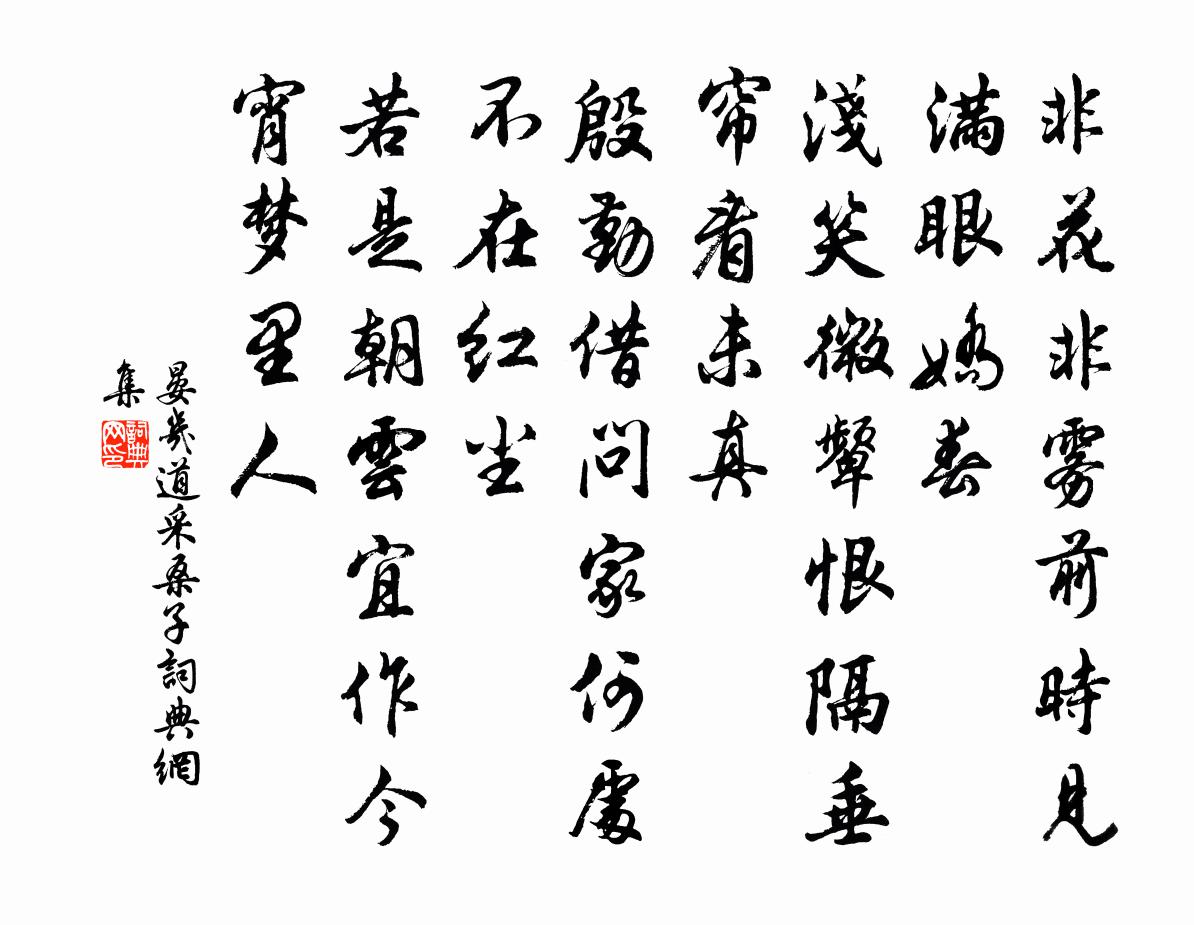 非花非雾前時見
满眼嬌春
淺笑微颦恨隔垂
帘看未真
殷勤借问家何處
不在红尘
若是朝雲宜作今
宵梦里人
晏幾道采桑子詞典網
集
詞典
网印